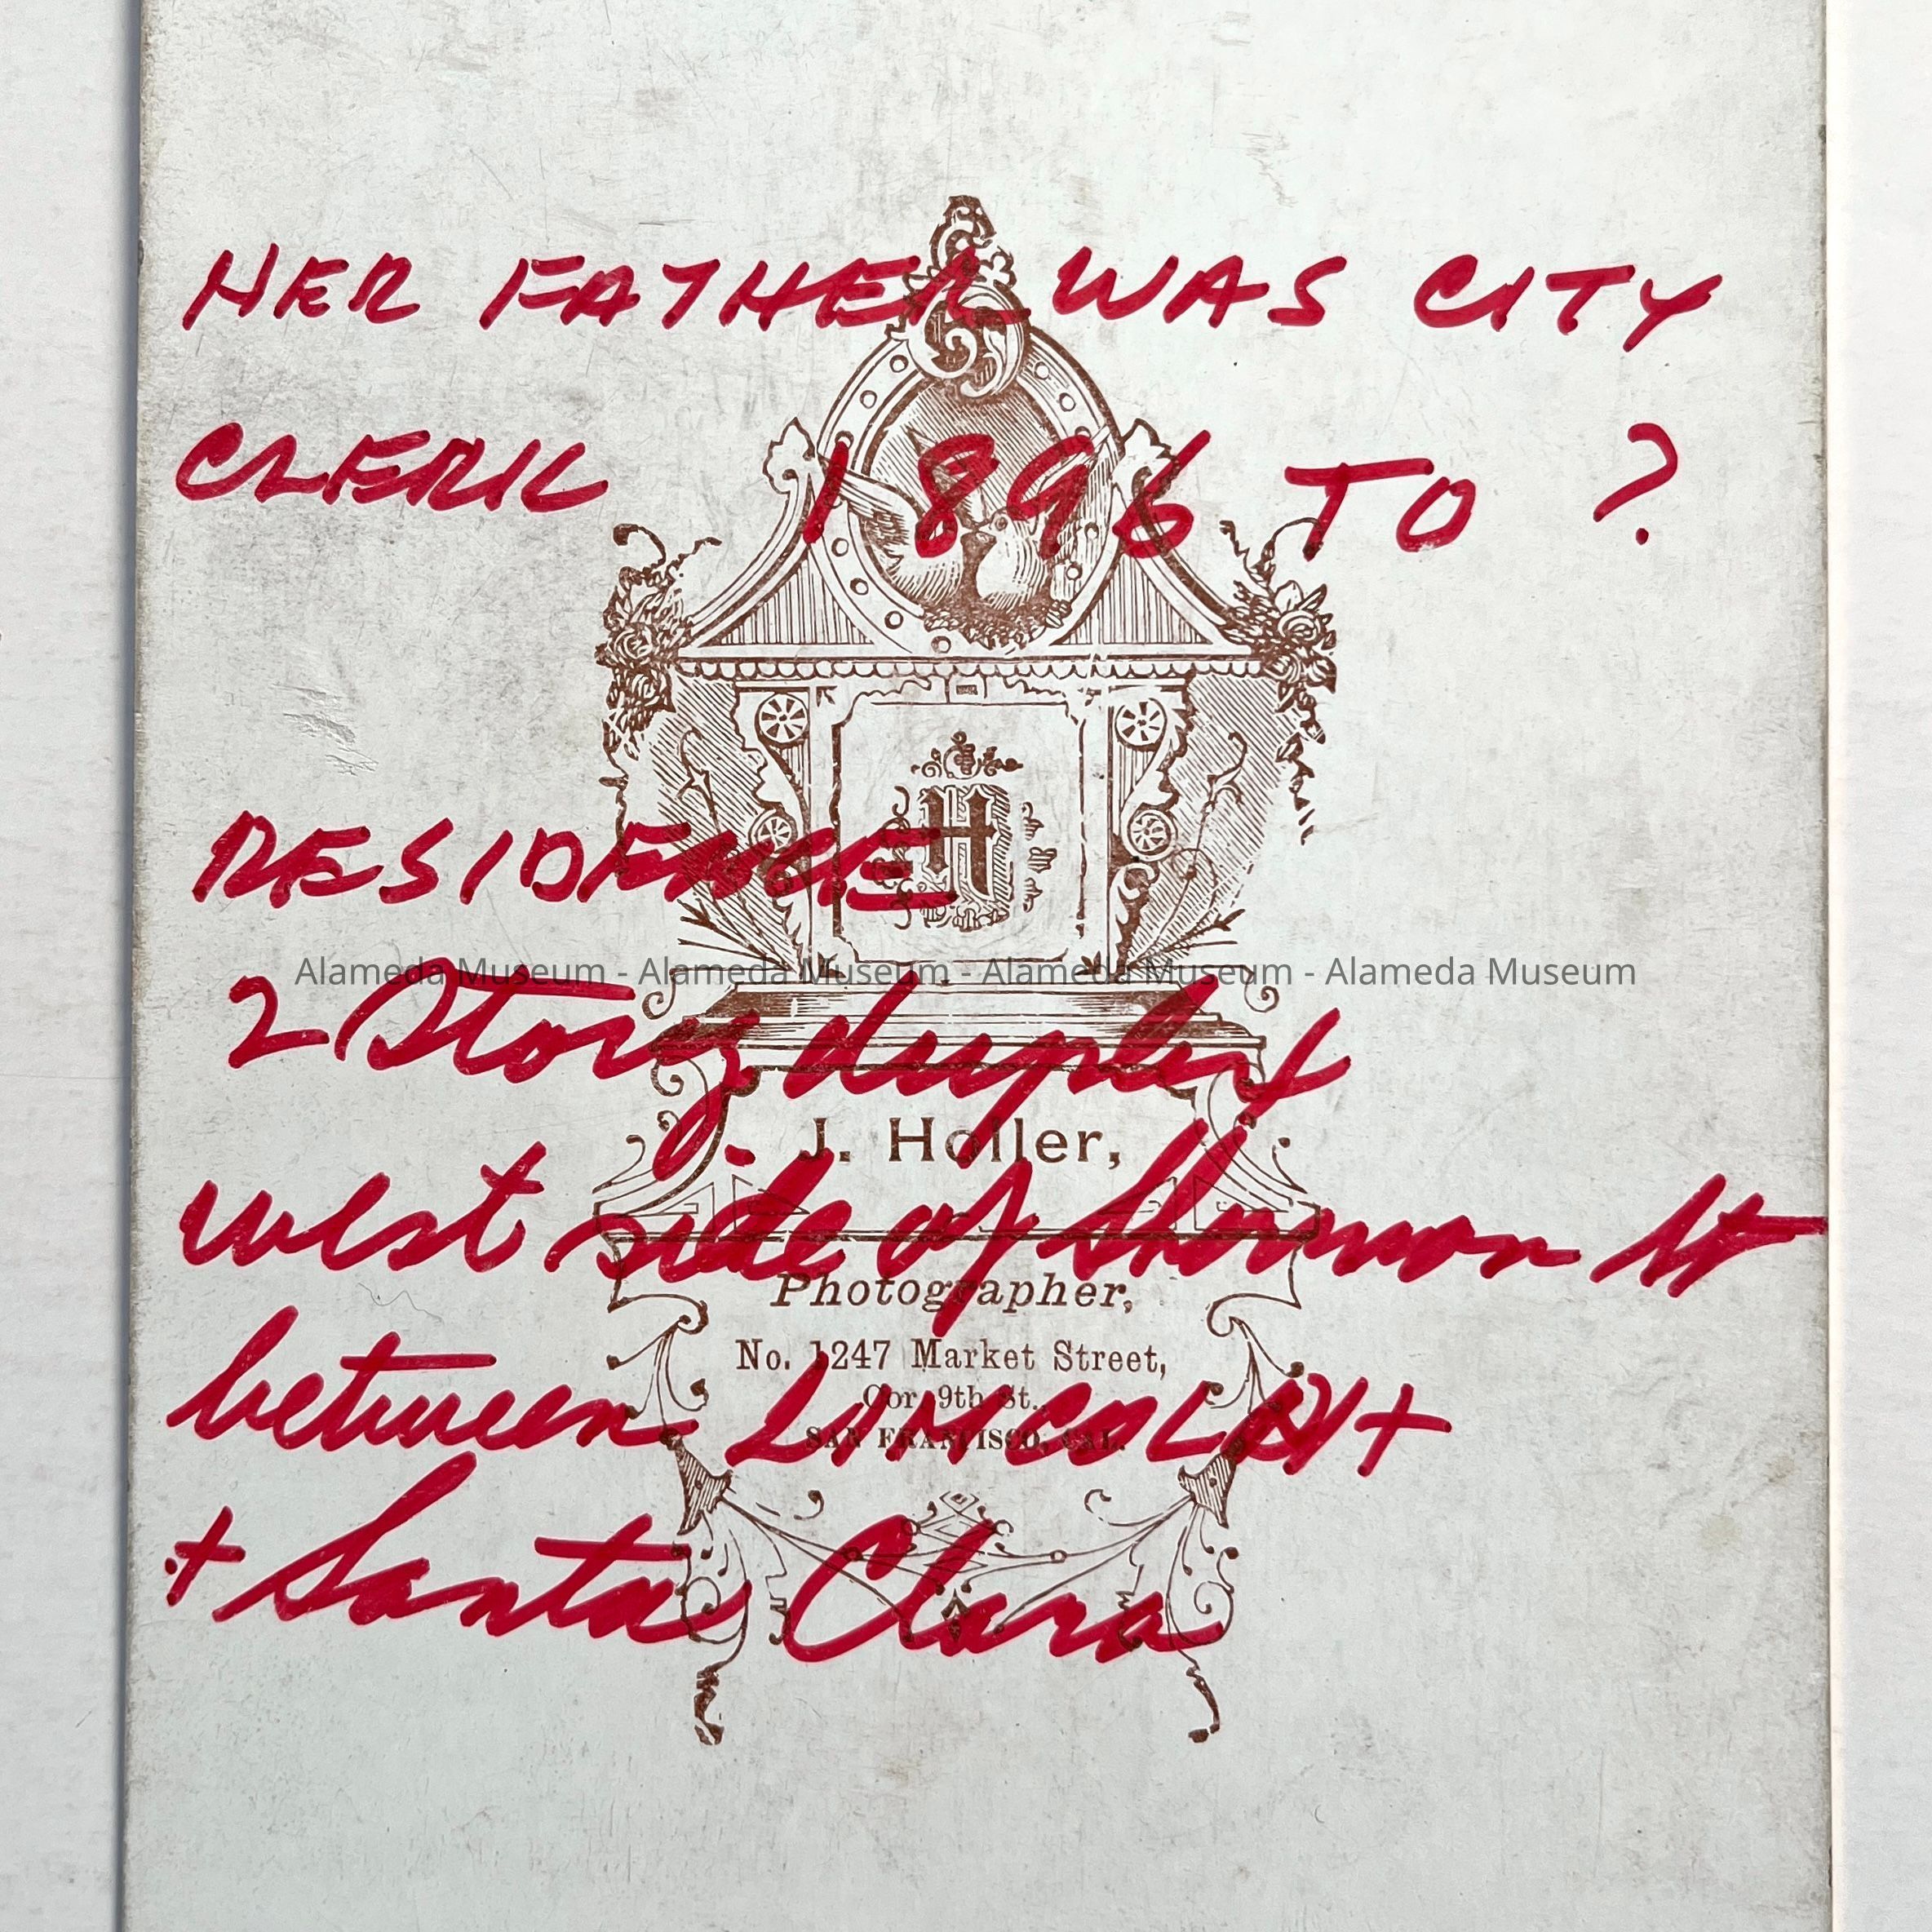 HER FATHER WAS CITY
CLERK 1896 TO ?
H
RESIDENCE
Alameda Museum - Alameda Museum - Alameda Museum - Alameda Museum
2 Story duplex
J. Holler,
west side of Sherman St
Photographer,
No. 1247 Market Street,
Cor. 9th St.,
between LINCOLN +
SAN FRANCISCO, CAL.
+ Santa Clara